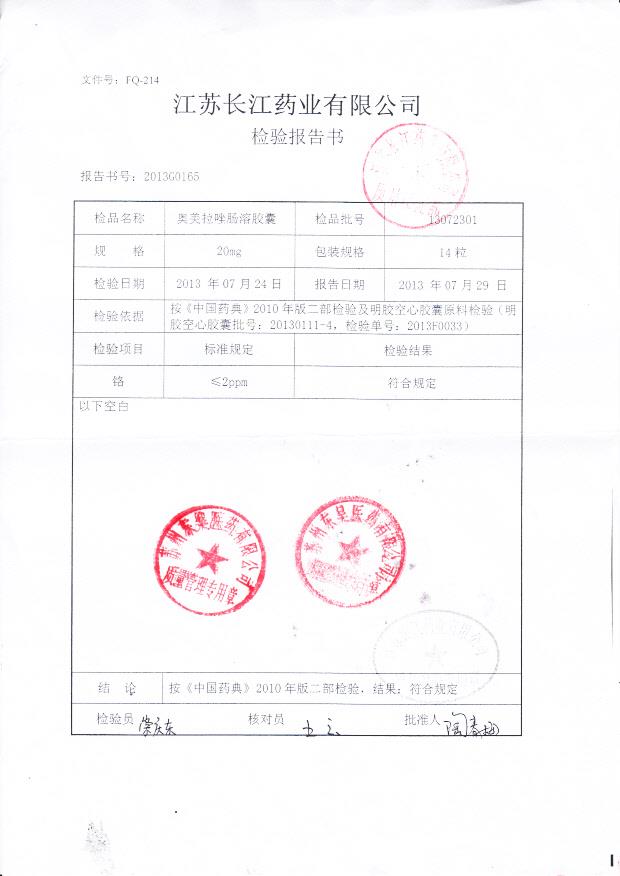 文件号：FQ-214
江苏长江药业有限公司
检验报告书
报告书号：2013G0165
检品名称 奥美拉唑肠溶胶囊 检品批号 13072301
规 格 20mg 包装规格 14粒
检验日期 2013 年 07 月 24 日 报告日期 2013 年 07 月 29 日
检验依据 按《中国药典》2010 年版二部检验及明胶空心胶囊原料检验（明
胶空心胶囊批号：20130111-4，检验单号：2013F0033）
检验项目 标准规定 检验结果
铬 ≤2ppm 符合规定
以下空白
医药有限公司
质量管理专用章
医药有限公司
结 论 按《中国药典》2010 年版二部检验，结果：符合规定
检验员 核对员 批准人